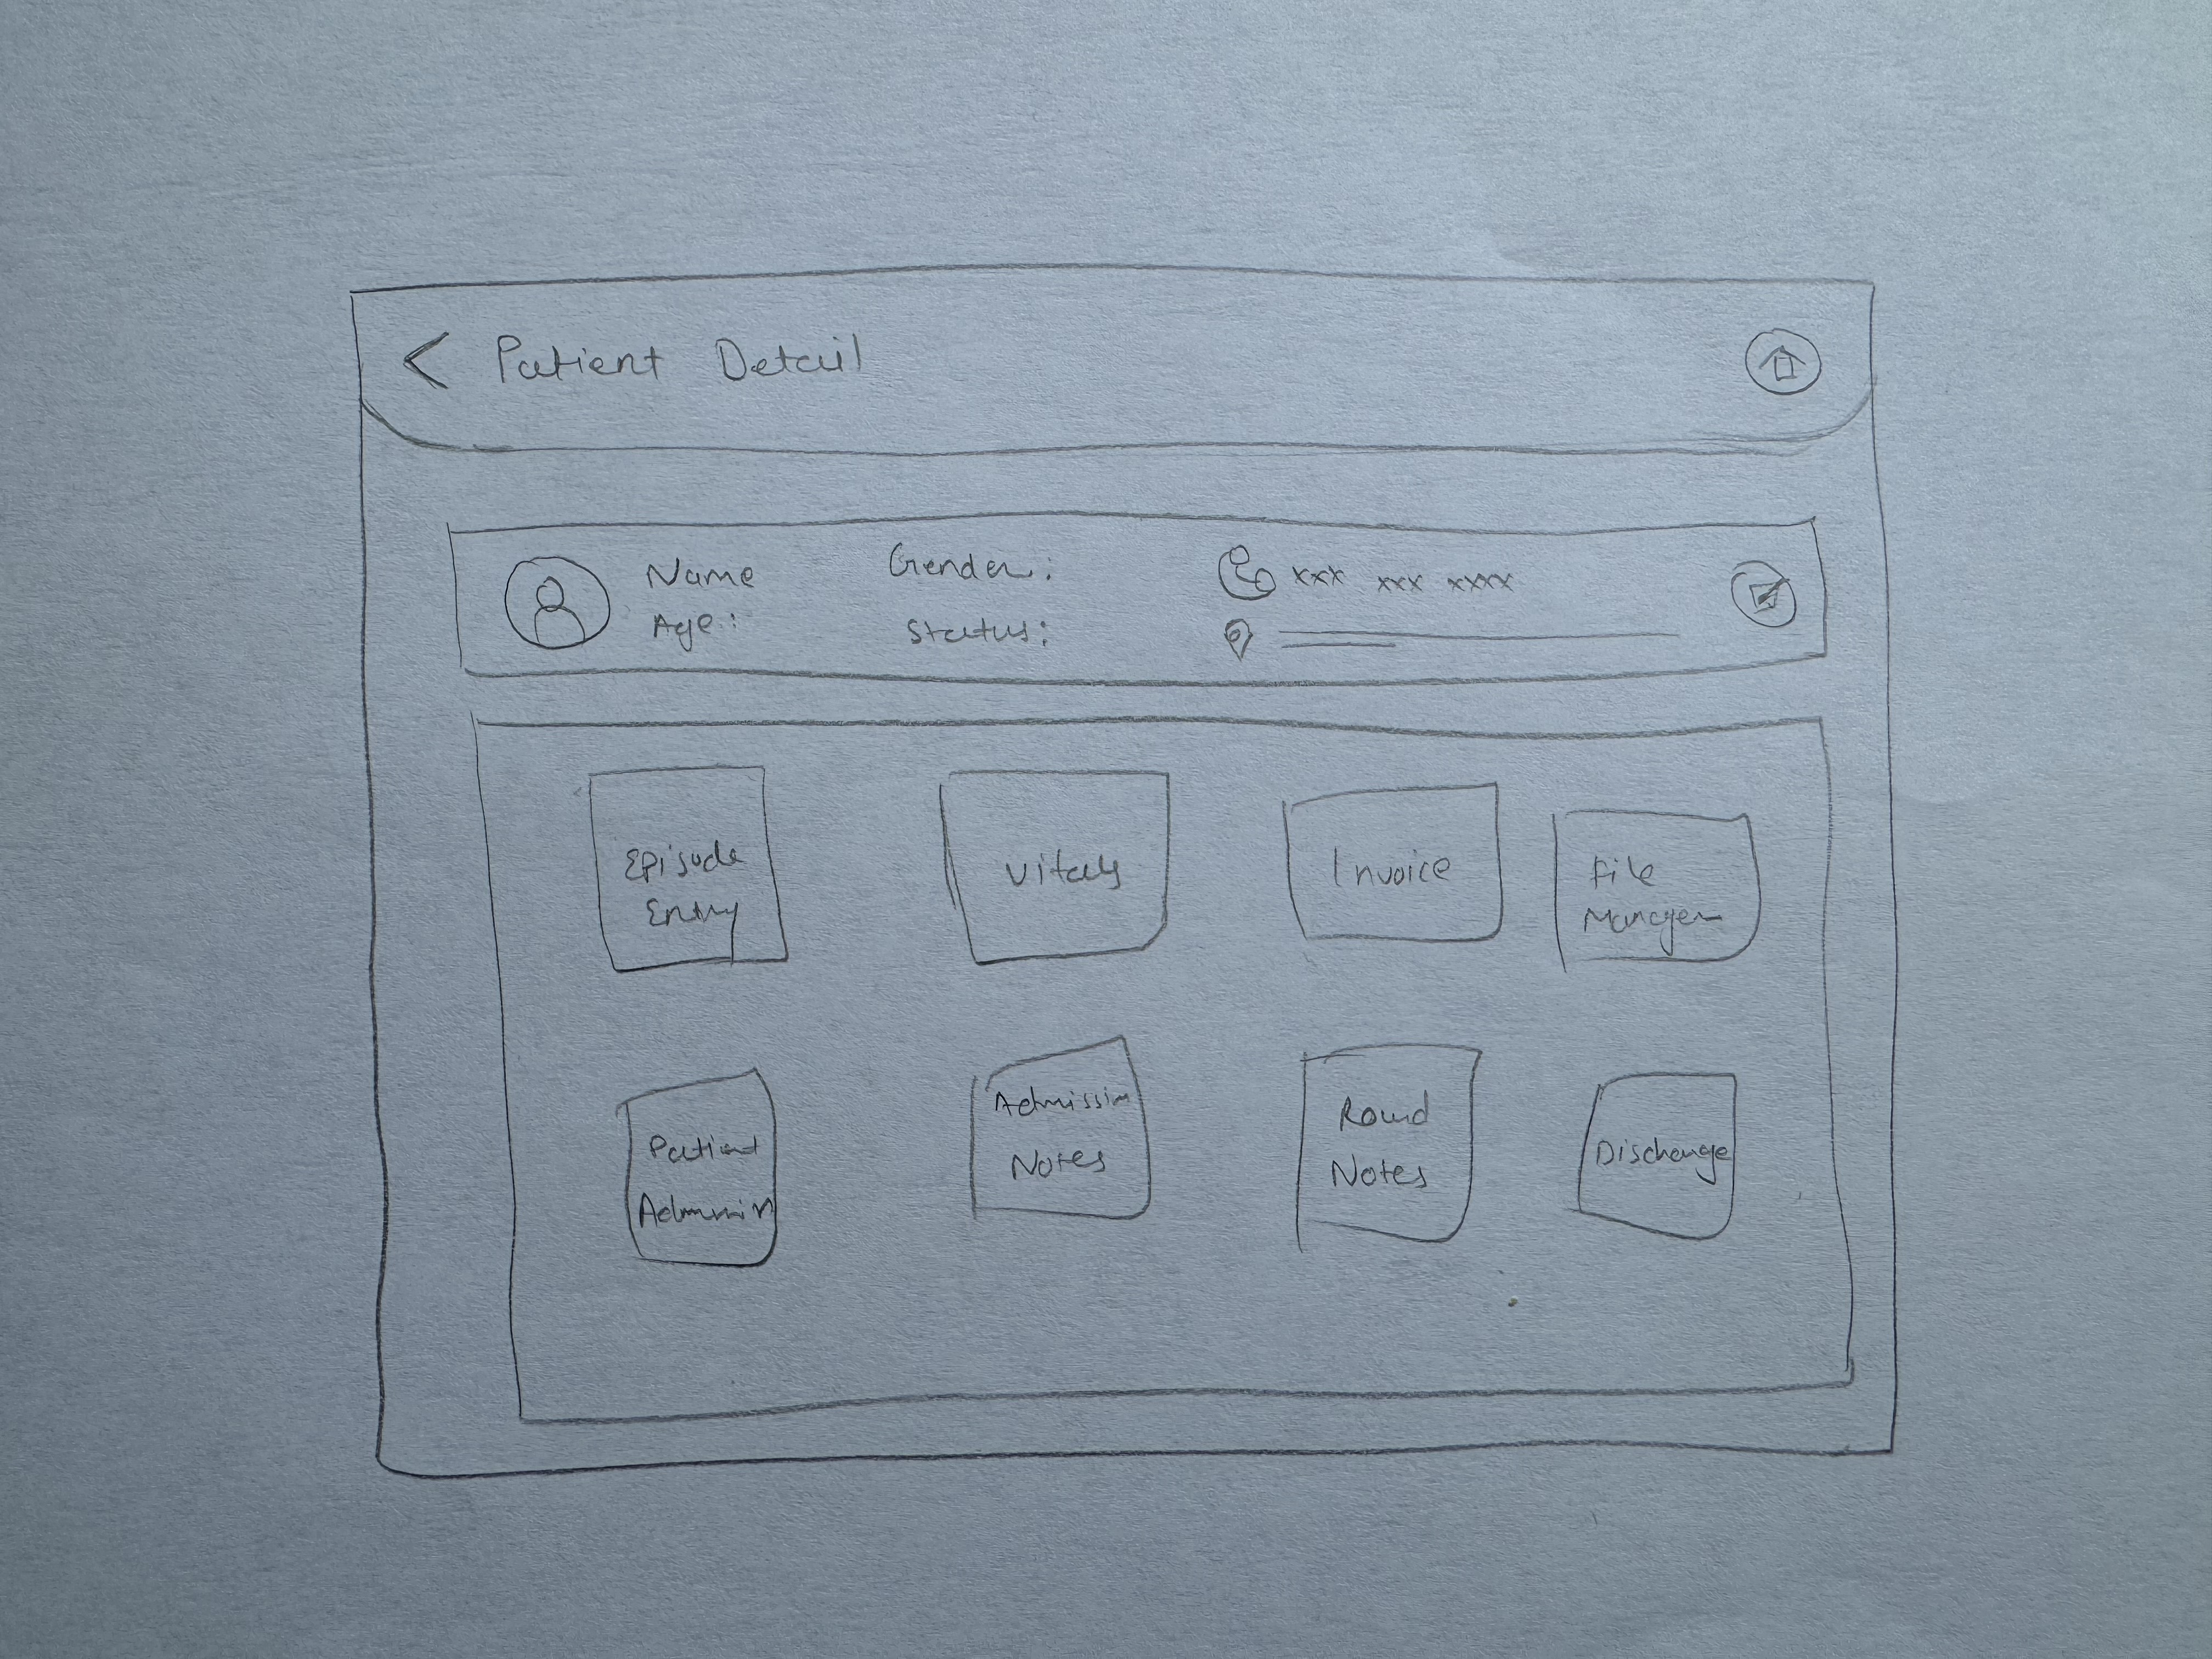 < Patient Detail
Name Gender: xxx xxx xxxx
Age: Status:
Episode
Entry
Vitals
Invoice
File
Manager
Patient
Admission
Notes
Round
Notes
Discharge